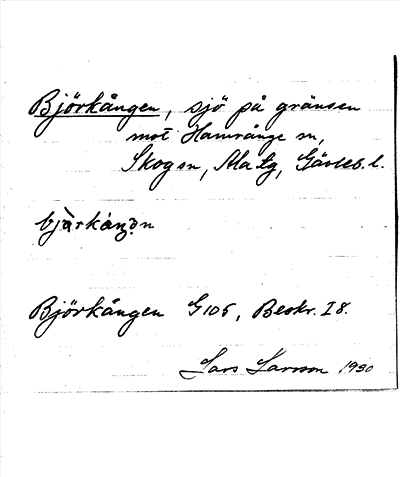 Björkången, sjö på gränsen
mot Hamrånge sn,
Skog sn, Ala tg, Gävleb. l.
bjàrkáŋən
Björkången G105, Beskr. I 8.
Lars Larsson 1930